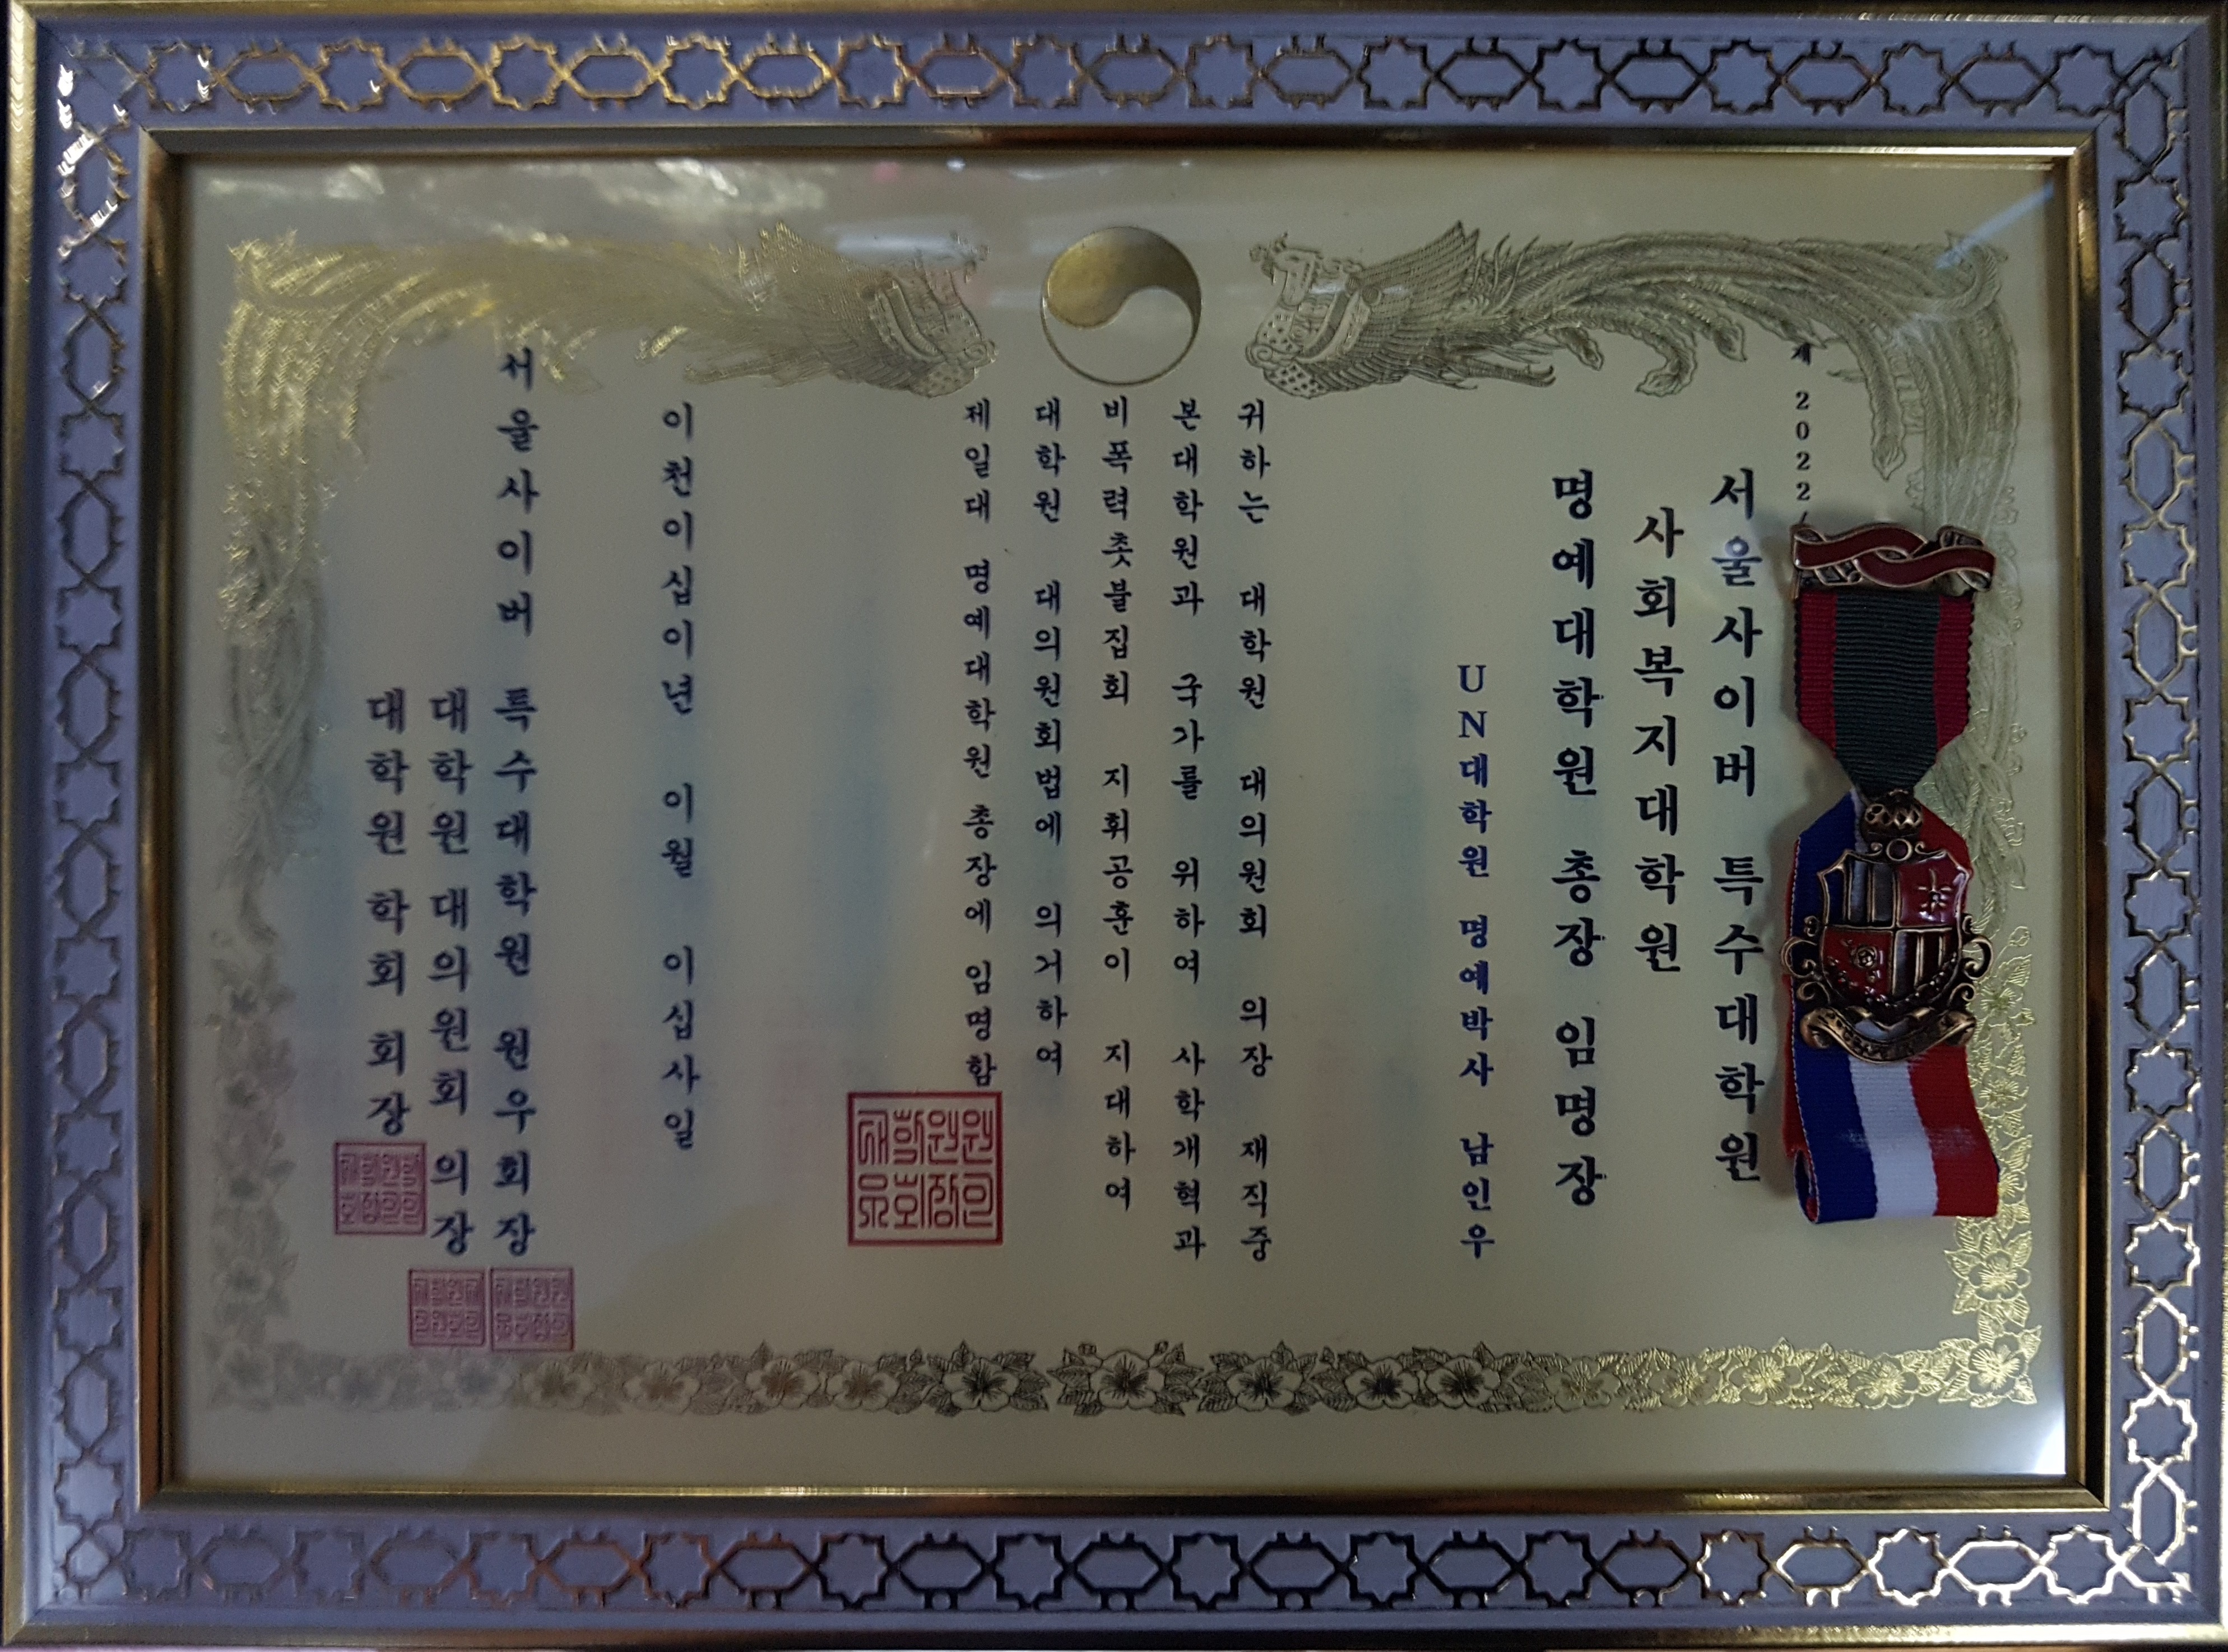 제 2022
서울사이버 특수대학원
사회복지대학원
명예대학원 총장 임명장
UN대학원 명예박사 남인우
귀하는 대학원 대의원회 의장 재직중
본대학원과 국가를 위하여 사학개혁과
비폭력촛불집회 지휘공훈이 지대하여
대학원 대의원회법에 의거하여
제일대 명예대학원 총장에 임명함
이천이십이년 이월 이십사일
서울사이버 특수대학원 원우회장
대학원 대의원회 의장
대학원 학회 회장